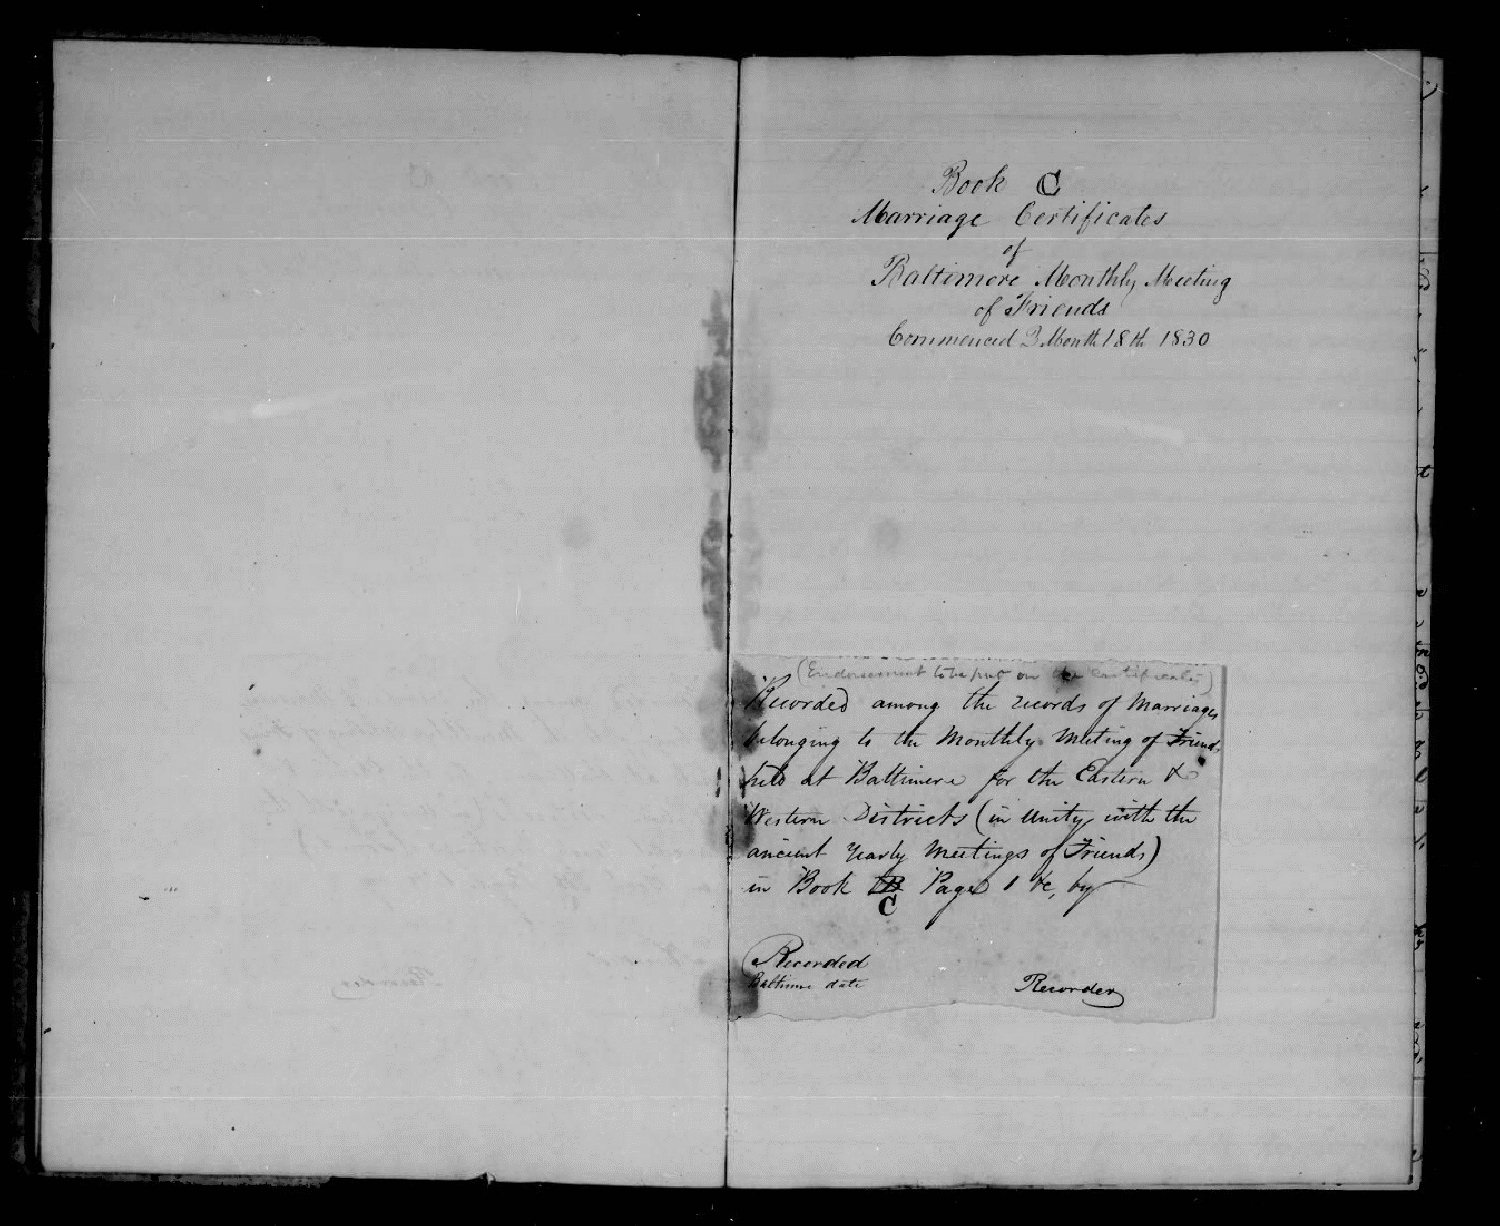 Book C
Marriage Certificates
of
Baltimore Monthly Meeting
of Friends
Commenced 3 Month 18th 1830
(Endorsement to be put on the Certificates)
Recorded among the records of Marriages
belonging to the Monthly Meeting of Friends
held at Baltimore for the Eastern &
Western Districts (in Unity with the
ancient Yearly Meetings of Friends)
in Book B Page 1 &c, by
C
Recorded
Baltimore date
Recorder